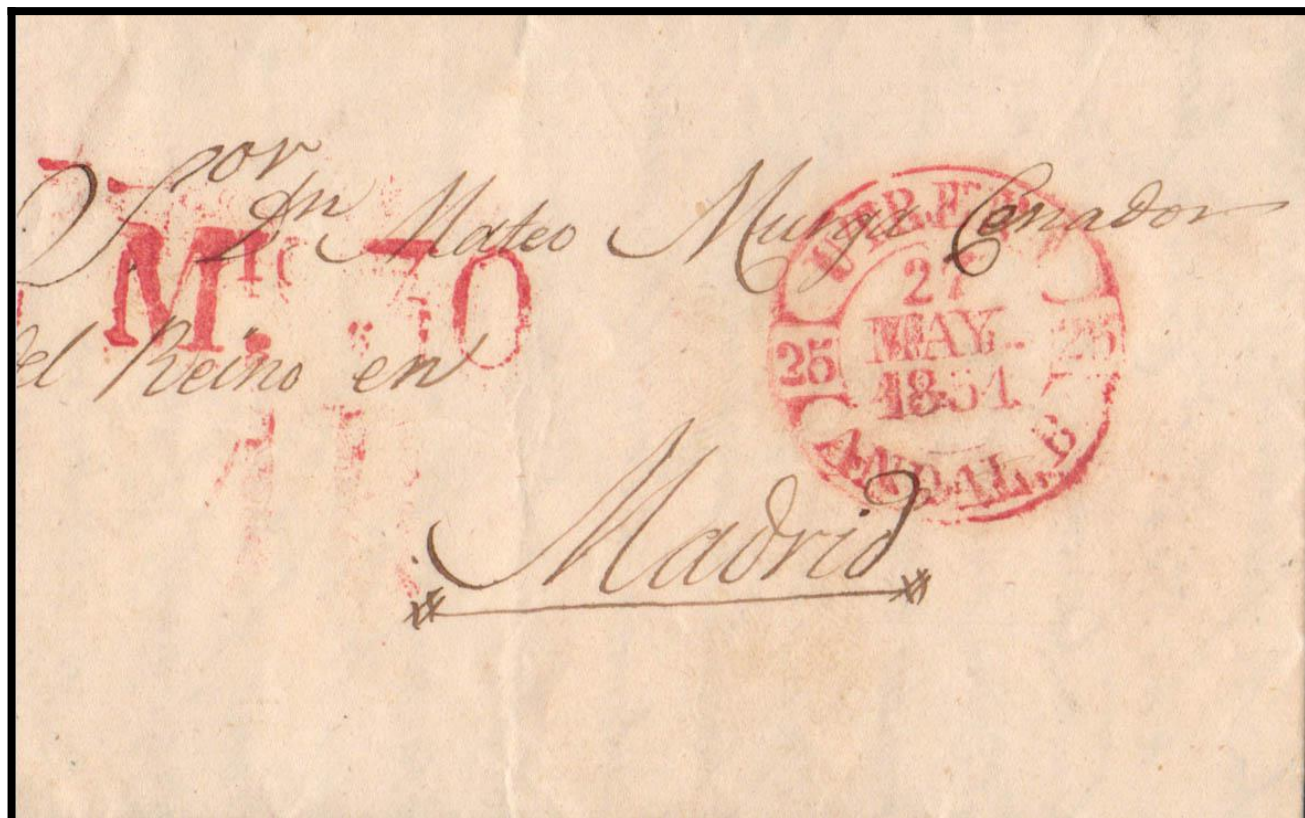 S.or Dn Mateo Murga Cenador
del Reino en
Madrid
M.
UTRERA
27
MAY.
1851
25 25
ANDAL. B